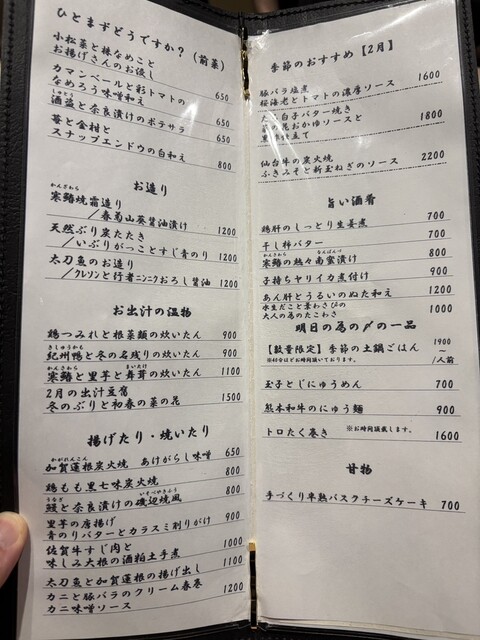 ひとまずどうですか？(前菜)
小松菜と株なめこと
お揚げさんのお浸し 650
カマンベールと彩トマトの
なめろう味噌和え 650
しゅとう
酒盗と奈良漬けのポテサラ 650
苺と金柑と
スナップエンドウの白和え 800
お造り
かんざわら
寒鰆焼霜造り
/春菊山葵醤油漬け 1200
天然ぶり炭たたき
/いぶりがっことすじ青のり 1200
太刀魚のお造り
/クレソンと行者ニンニクおろし醤油 1200
お出汁の温物
鶏つみれと根菜類の炊いたん 900
きしゅうかも
紀州鴨と冬の名残りの炊いたん 900
かんざわら まいたけ
寒鰆と里芋と舞茸の炊いたん 1100
2月の出汁豆腐
冬のぶりと初春の菜の花 1500
揚げたり・焼いたり
かがれんこん
加賀蓮根炭火焼 あけがらし味噌 650
鶏もも黒七味炭火焼 800
うなぎ いそべやきふう
鰻と奈良漬けの磯辺焼風 800
里芋の唐揚げ
青のりバターとカラスミ削りがけ 900
佐賀牛すじ肉と
味しみ大根の酒粕土手煮 1000
太刀魚と加賀蓮根の揚げ出し 1100
カニと豚バラのクリーム春巻
カニ味噌ソース 1200
季節のおすすめ【2月】
豚バラ塩煮
桜海老とトマトの濃厚ソース 1600
白子バター焼き
の花おかゆソースと
立て 1800
仙台牛の炭火焼
ふきみそと新玉ねぎのソース 2200
旨い酒肴
鶏肝のしっとり生姜煮 700
干し柿バター 700
かんざわら なんばんづけ
寒鰆の熱々南蛮漬け 800
子持ちヤリイカ煮付け 900
あん肝とうるいのぬた和え 1200
水生だこと葉わさびの
大人の為のたこわさ 1000
明日の為の〆の一品
【数量限定】季節の土鍋ごはん 1900
～
※40分ほどお時間頂いております。 /人前
玉子とじにゅうめん 700
熊本和牛のにゅう麺 900
トロたく巻き ※お時間頂戴します。 1600
甘物
手づくり半熟バスクチーズケーキ 700